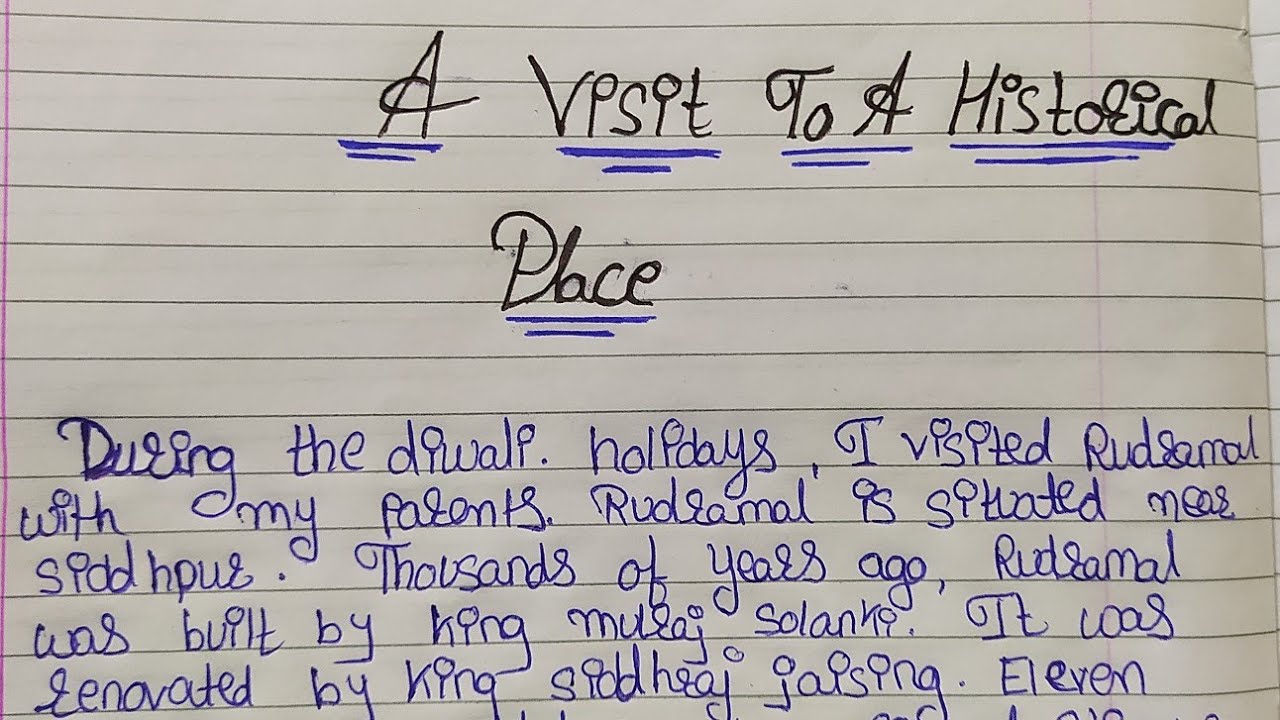 A Visit To A Historical
Place
During the diwali. holidays, I visited Rudramal
with my parents. Rudramal is situated near
siddhpur. Thousands of years ago, Rudramal
was built by King mulraj solanki. It was
renovated by King siddhraj jaising. Eleven